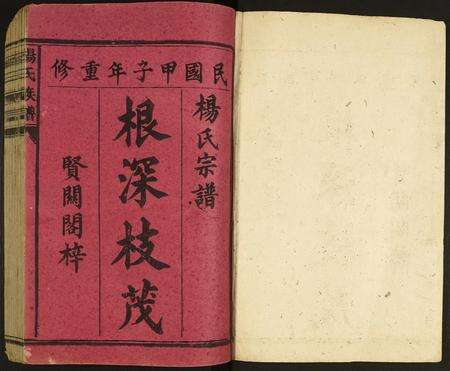 民國甲子年重修
楊氏宗譜
根深枝茂
賢關閣梓
楊氏族譜